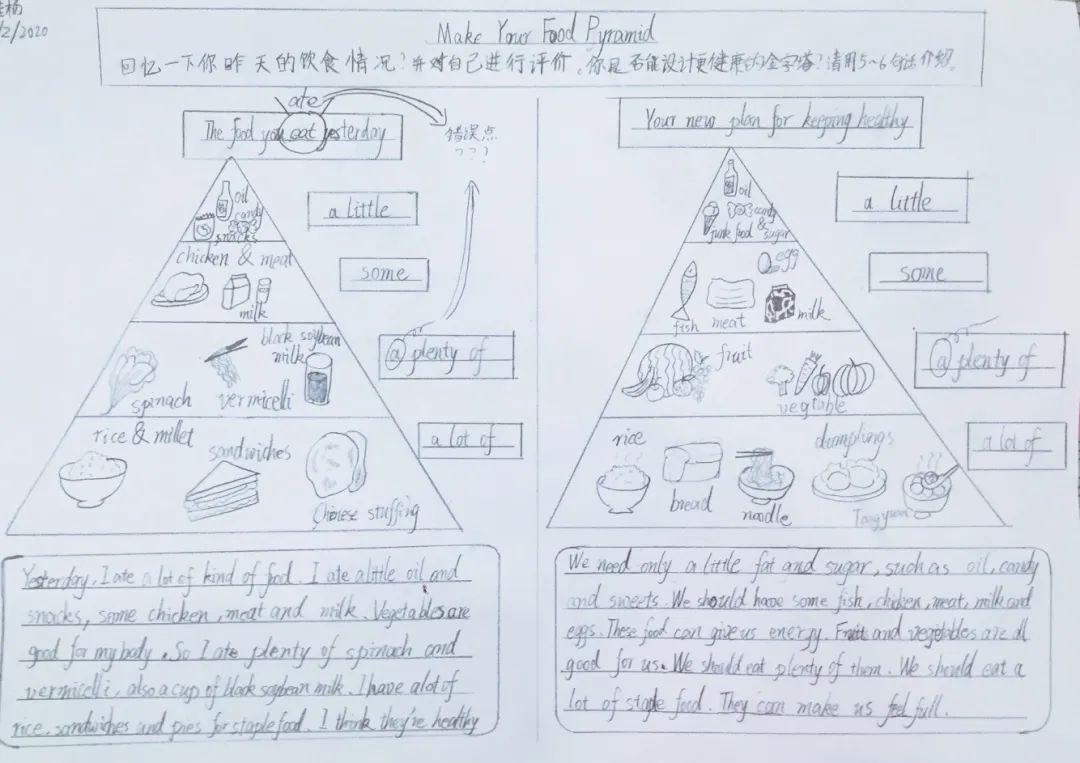 杨
/2/2020
Make Your Food Pyramid
回忆一下你昨天的饮食情况?并对自己进行评价。你是否能设计更健康的金字塔?请用5~6句话介绍。
ate
The food you eat yesterday
错误点
???
oil
candy
snacks
a little
chicken & meat
milk
some
black soybean
milk
spinach
vermicelli
a plenty of
rice & millet
sandwiches
Chinese stuffing
a lot of
Yesterday, I ate a lot of kind of food. I ate a little oil and
snacks, some chicken, meat and milk. Vegetables are
good for my body. So I ate plenty of spinach and
vermicelli, also a cup of black soybean milk. I have a lot of
rice, sandwiches and pies for staple food. I think they're healthy
Your new plan for keeping healthy
oil
candy
junk food & sugar
a little
egg
fish
meat
milk
some
fruit
vegtable
a plenty of
rice
bread
noodle
dumplings
Tangyuan
a lot of
We need only a little fat and sugar, such as oil, candy
and sweets. We should have some fish, chicken, meat, milk and
eggs. These food can give us energy. Fruit and vegetables are all
good for us. We should eat plenty of them. We should eat a
lot of staple food. They can make us feel full.